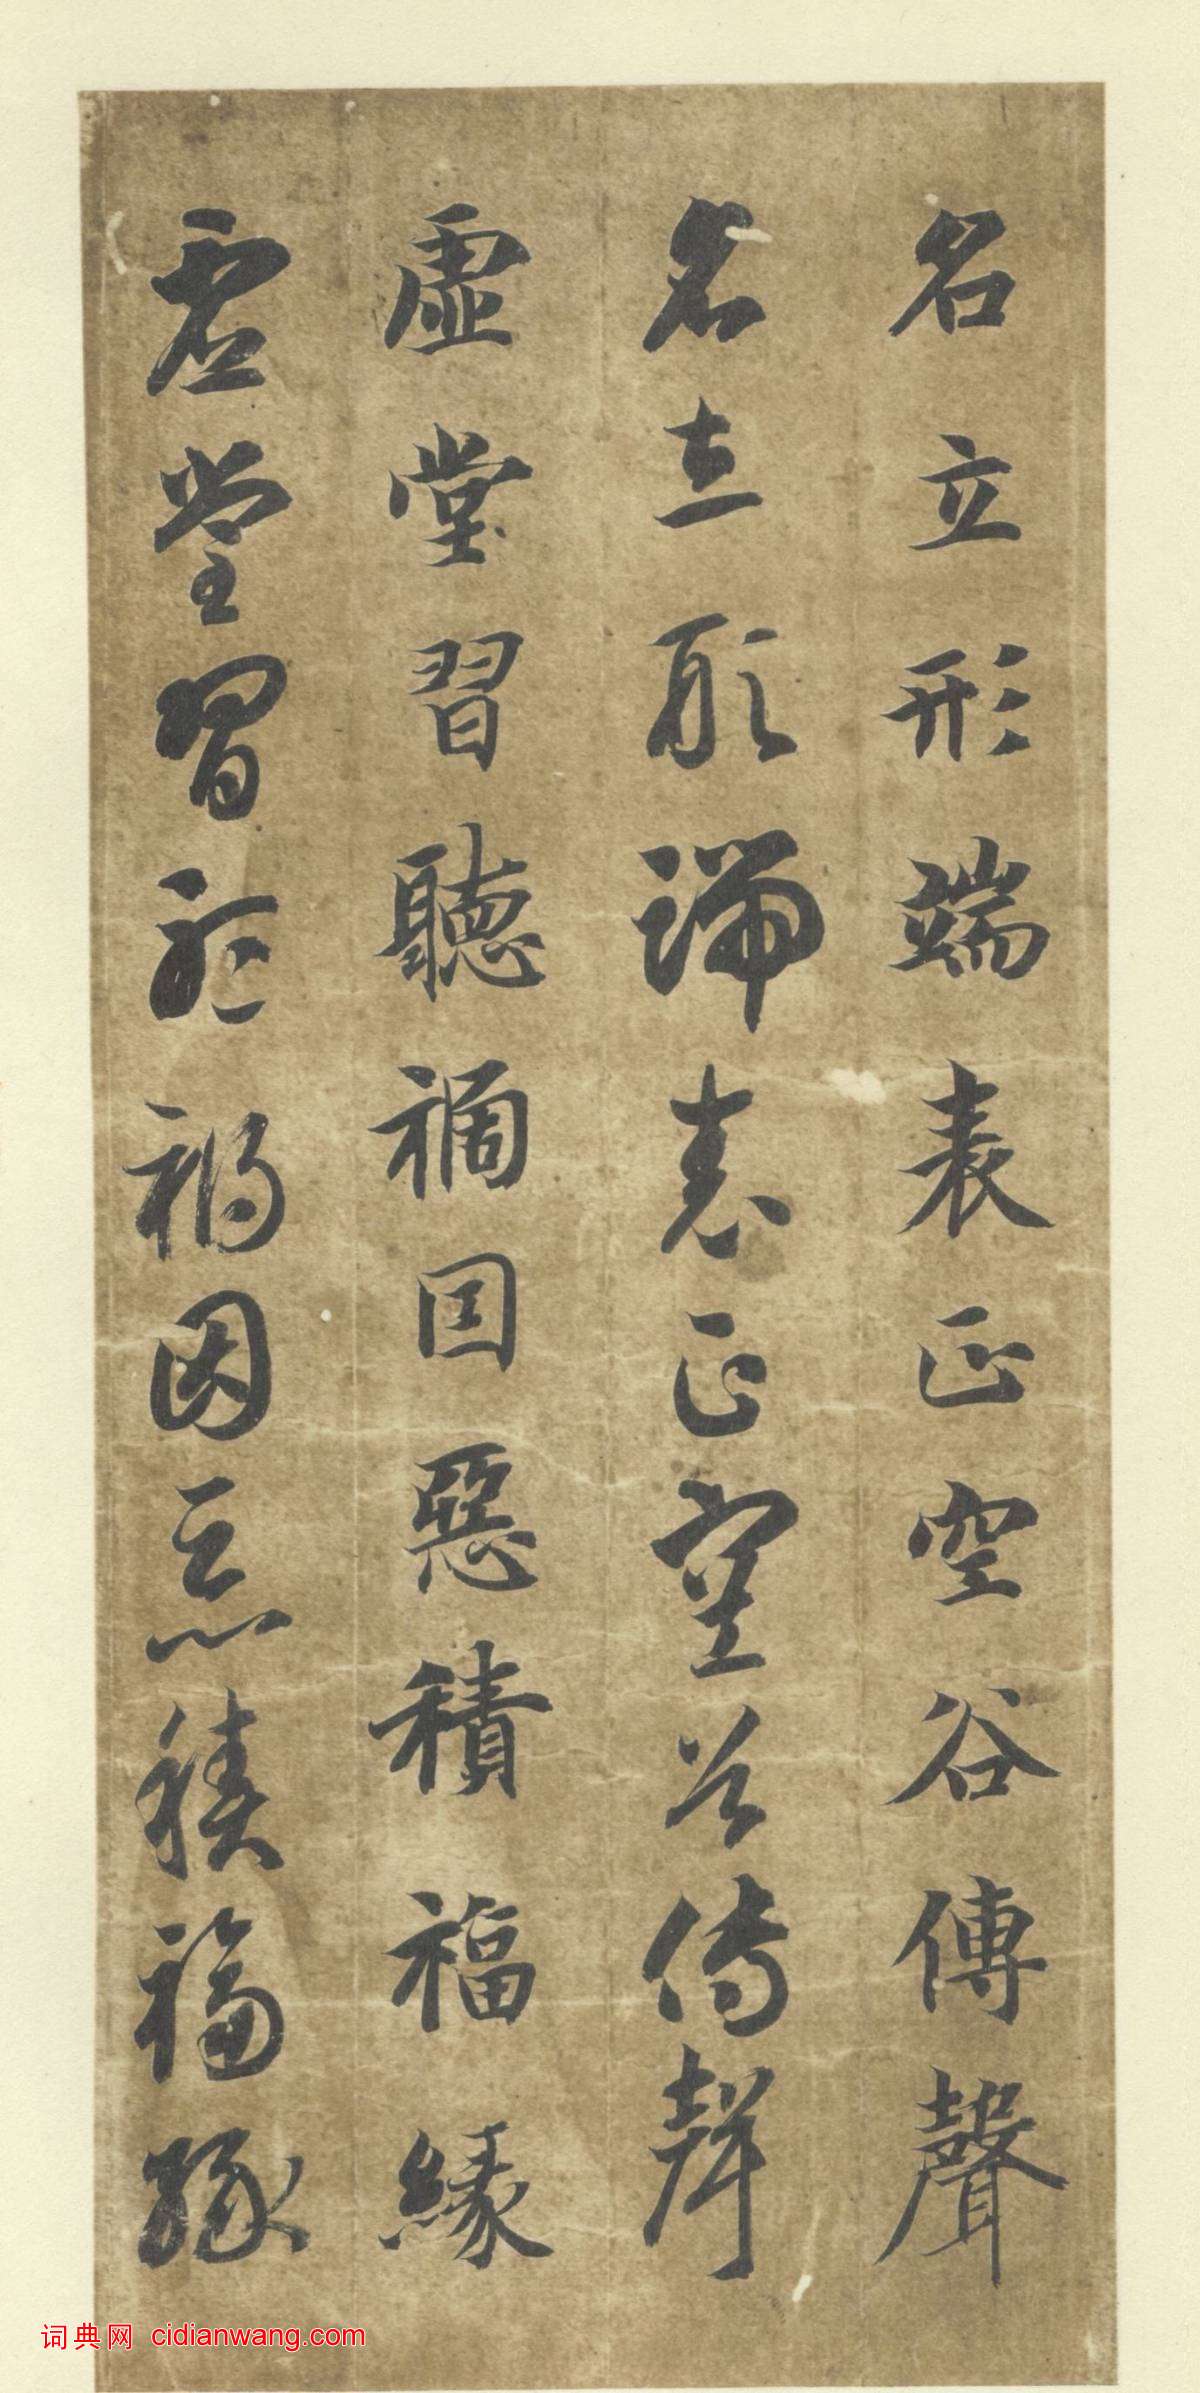 名立形端表正空谷傳聲
名立形端表正空谷傳聲
虛堂習聽禍因惡積福緣
虛堂習聽禍因惡積福緣
词典网 cidianwang.com